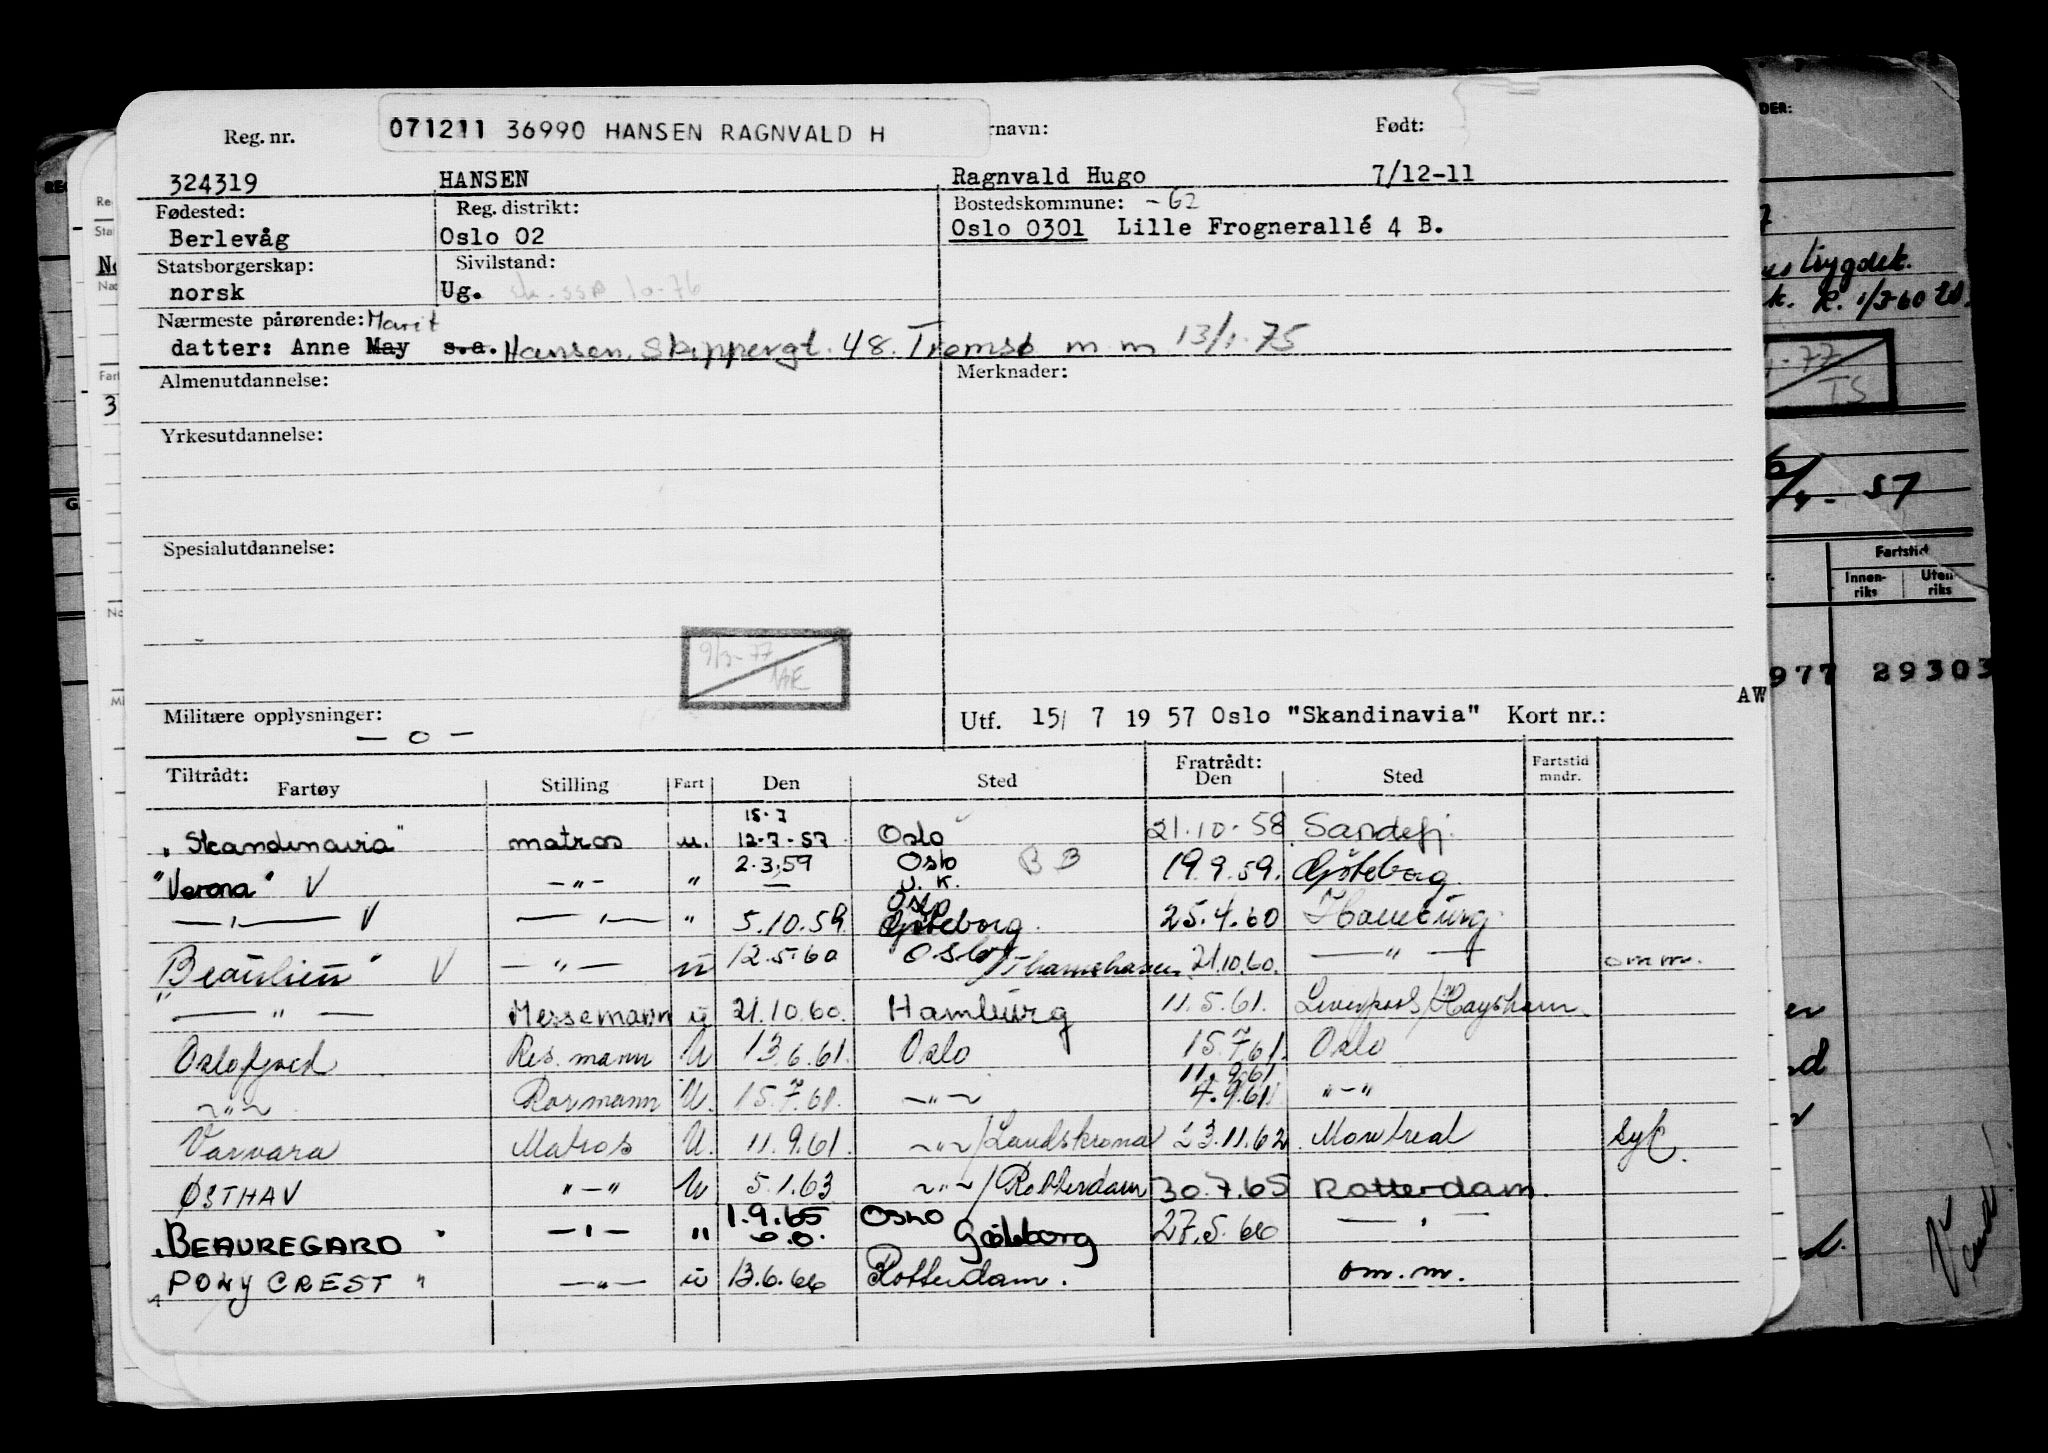 071211 36990 HANSEN RAGNVALD H
Reg. nr. rnavn: Født:
324319 HANSEN Ragnvald Hugo 7/12-11
Fødested: Reg. distrikt: Bostedskommune: -62
Berlevåg Oslo 02 Oslo 0301 Lille Frognerallé 4 B.
Statsborgerskap: Sivilstand:
norsk Ug. 10-76
Nærmeste pårørende: Marit
datter: Anne May s.a. Hansen, Skippergt. 48. Tromsø m m 13/1-75
Almenutdannelse: Merknader:
Yrkesutdannelse:
Spesialutdannelse:
9/3-77
Militære opplysninger: Utf. 15/ 7 19 57 Oslo "Skandinavia" Kort nr.:
— o —
AW
Tiltrådt: Fratrådt: Fartstid
Fartøy Stilling Fart Den Sted Den Sted mndr.
15.7
"Skandinavia" matros u. 12-7-57 Oslo 21.10-58 Sandefj.
"Verona" V —"— " 2.3.59 Oslo U.K. BB 19.9.59. Göteborg
—"— V —"— " 5.10.59 Oslo Göteborg 25.4.60 Hamburg
"Beaulieu" V —"— u 12.5.60 Oslo/Thamshavn 21.10.60. —"— omm.
—"— Messemann u 21.10.60. Hamburg 11.5.61. Liverpool/Haysham
Oslofjord Res. mann U 13.6.61. Oslo 15.7.61. Oslo
11.9.61
~"~ Rormann U. 15.7.61. ~"~ 4.9.61. "-"
Varvara Matros U. 11.9.61. ~"~/Landskrona 23.11.62 Montreal syk.
ØSTHAV "-" U 5.1.63 ~"~/Rotterdam 30.7.65 Rotterdam.
"BEAUREGARD" —"— " 1.9.65 Oslo Göteborg 27.5.66 —"—
"PONY CREST" —"— u 13.6.66 Rotterdam. om.m.
DER:
trygdek.
k. R. 1/2 60
77
TS
57
Fartstid
Innen-
riks
Uten-
riks
977 29303